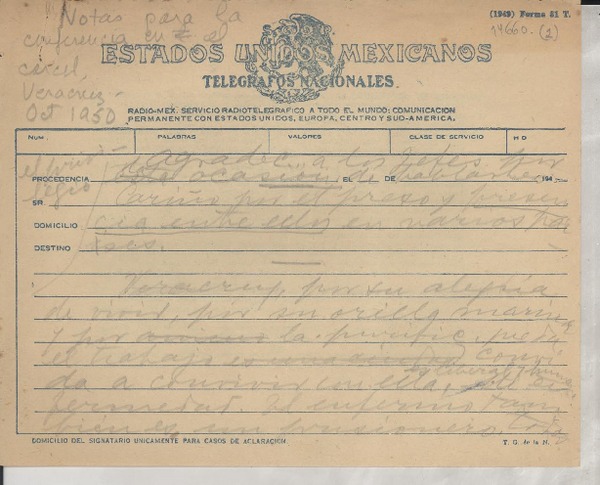 "Notas para la
conferencia en el
carcel,
Veracruz -
Oct 1950
(1949) Forma 81 T.
14660. (1)
ESTADOS UNIDOS MEXICANOS
TELEGRAFOS NACIONALES
RADIO-MEX. SERVICIO RADIOTELEGRAFICO A TODO EL MUNDO; COMUNICACION
PERMANENTE CON ESTADOS UNIDOS, EUROPA, CENTRO Y SUD-AMERICA.
NUM. PALABRAS VALORES CLASE DE SERVICIO H D
Agradec. a los Jefes por
PROCEDENCIA ocasión EL DE de hablarles 194
SR. Cariño por el preso y presen
DOMICILIO cia entre ellos en varios pa
DESTINO íses.
Veracruz, por su alegría
de vivir, por su orilla marina
y por la
el trabajo convi
da a convivir con ella,
fermedad. El enfermo tam
bién es un prisionero.
DOMICILIO DEL SIGNATARIO UNICAMENTE PARA CASOS DE ACLARACION.
T. G. de la N.